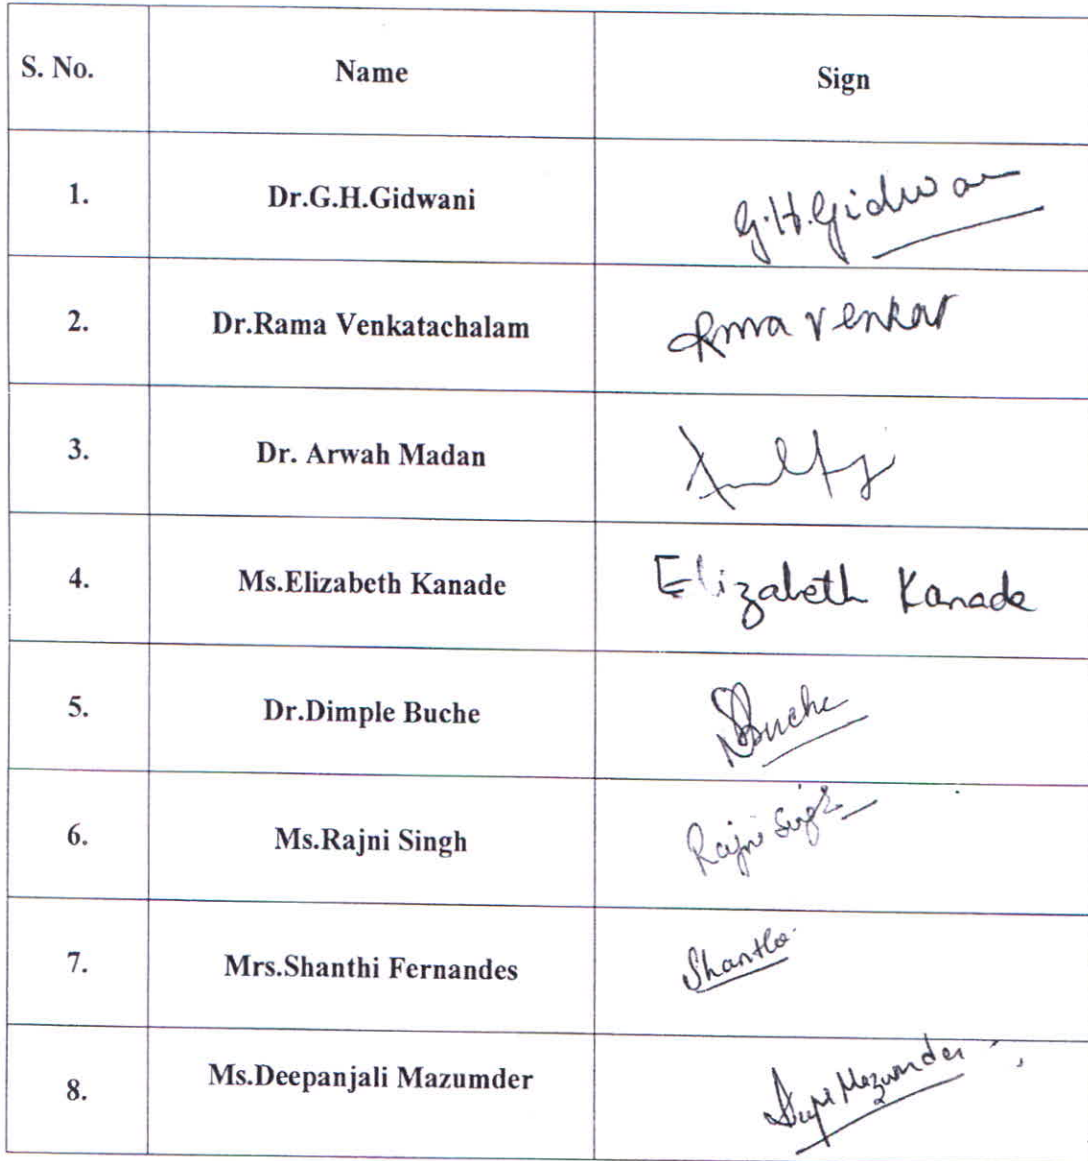 S. No. Name Sign
1. Dr.G.H.Gidwani G.H.Gidwani
2. Dr.Rama Venkatachalam Rama Venkat
3. Dr. Arwah Madan
4. Ms.Elizabeth Kanade Elizabeth Kanade
5. Dr.Dimple Buche DBuche
6. Ms.Rajni Singh Rajni Singh
7. Mrs.Shanthi Fernandes
8. Ms.Deepanjali Mazumder Mazumder